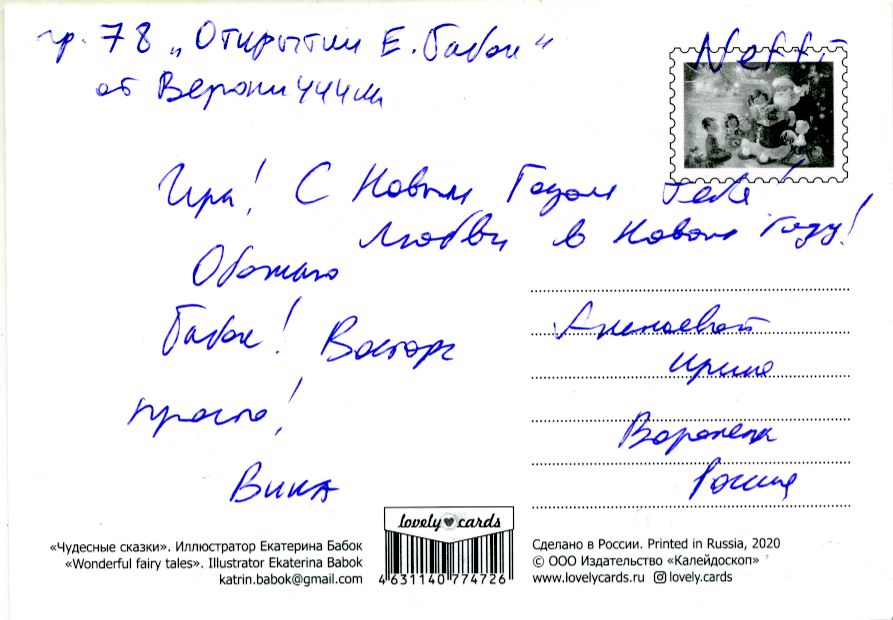 гр. 78 „Открытки Е. Бабок"
от Верони444ки
Neffi
Ира! С Новым Годом тебя!
Любви в Новом Году!
Обожаю
Бабок! Восторг
просто!
Вика
Ирине
Воронеж
Россия
lovely cards
«Чудесные сказки». Иллюстратор Екатерина Бабок
«Wonderful fairy tales». Illustrator Ekaterina Babok
katrin.babok@gmail.com
4 631140 774726
Сделано в России. Printed in Russia, 2020
© ООО Издательство «Калейдоскоп»
www.lovelycards.ru lovely.cards